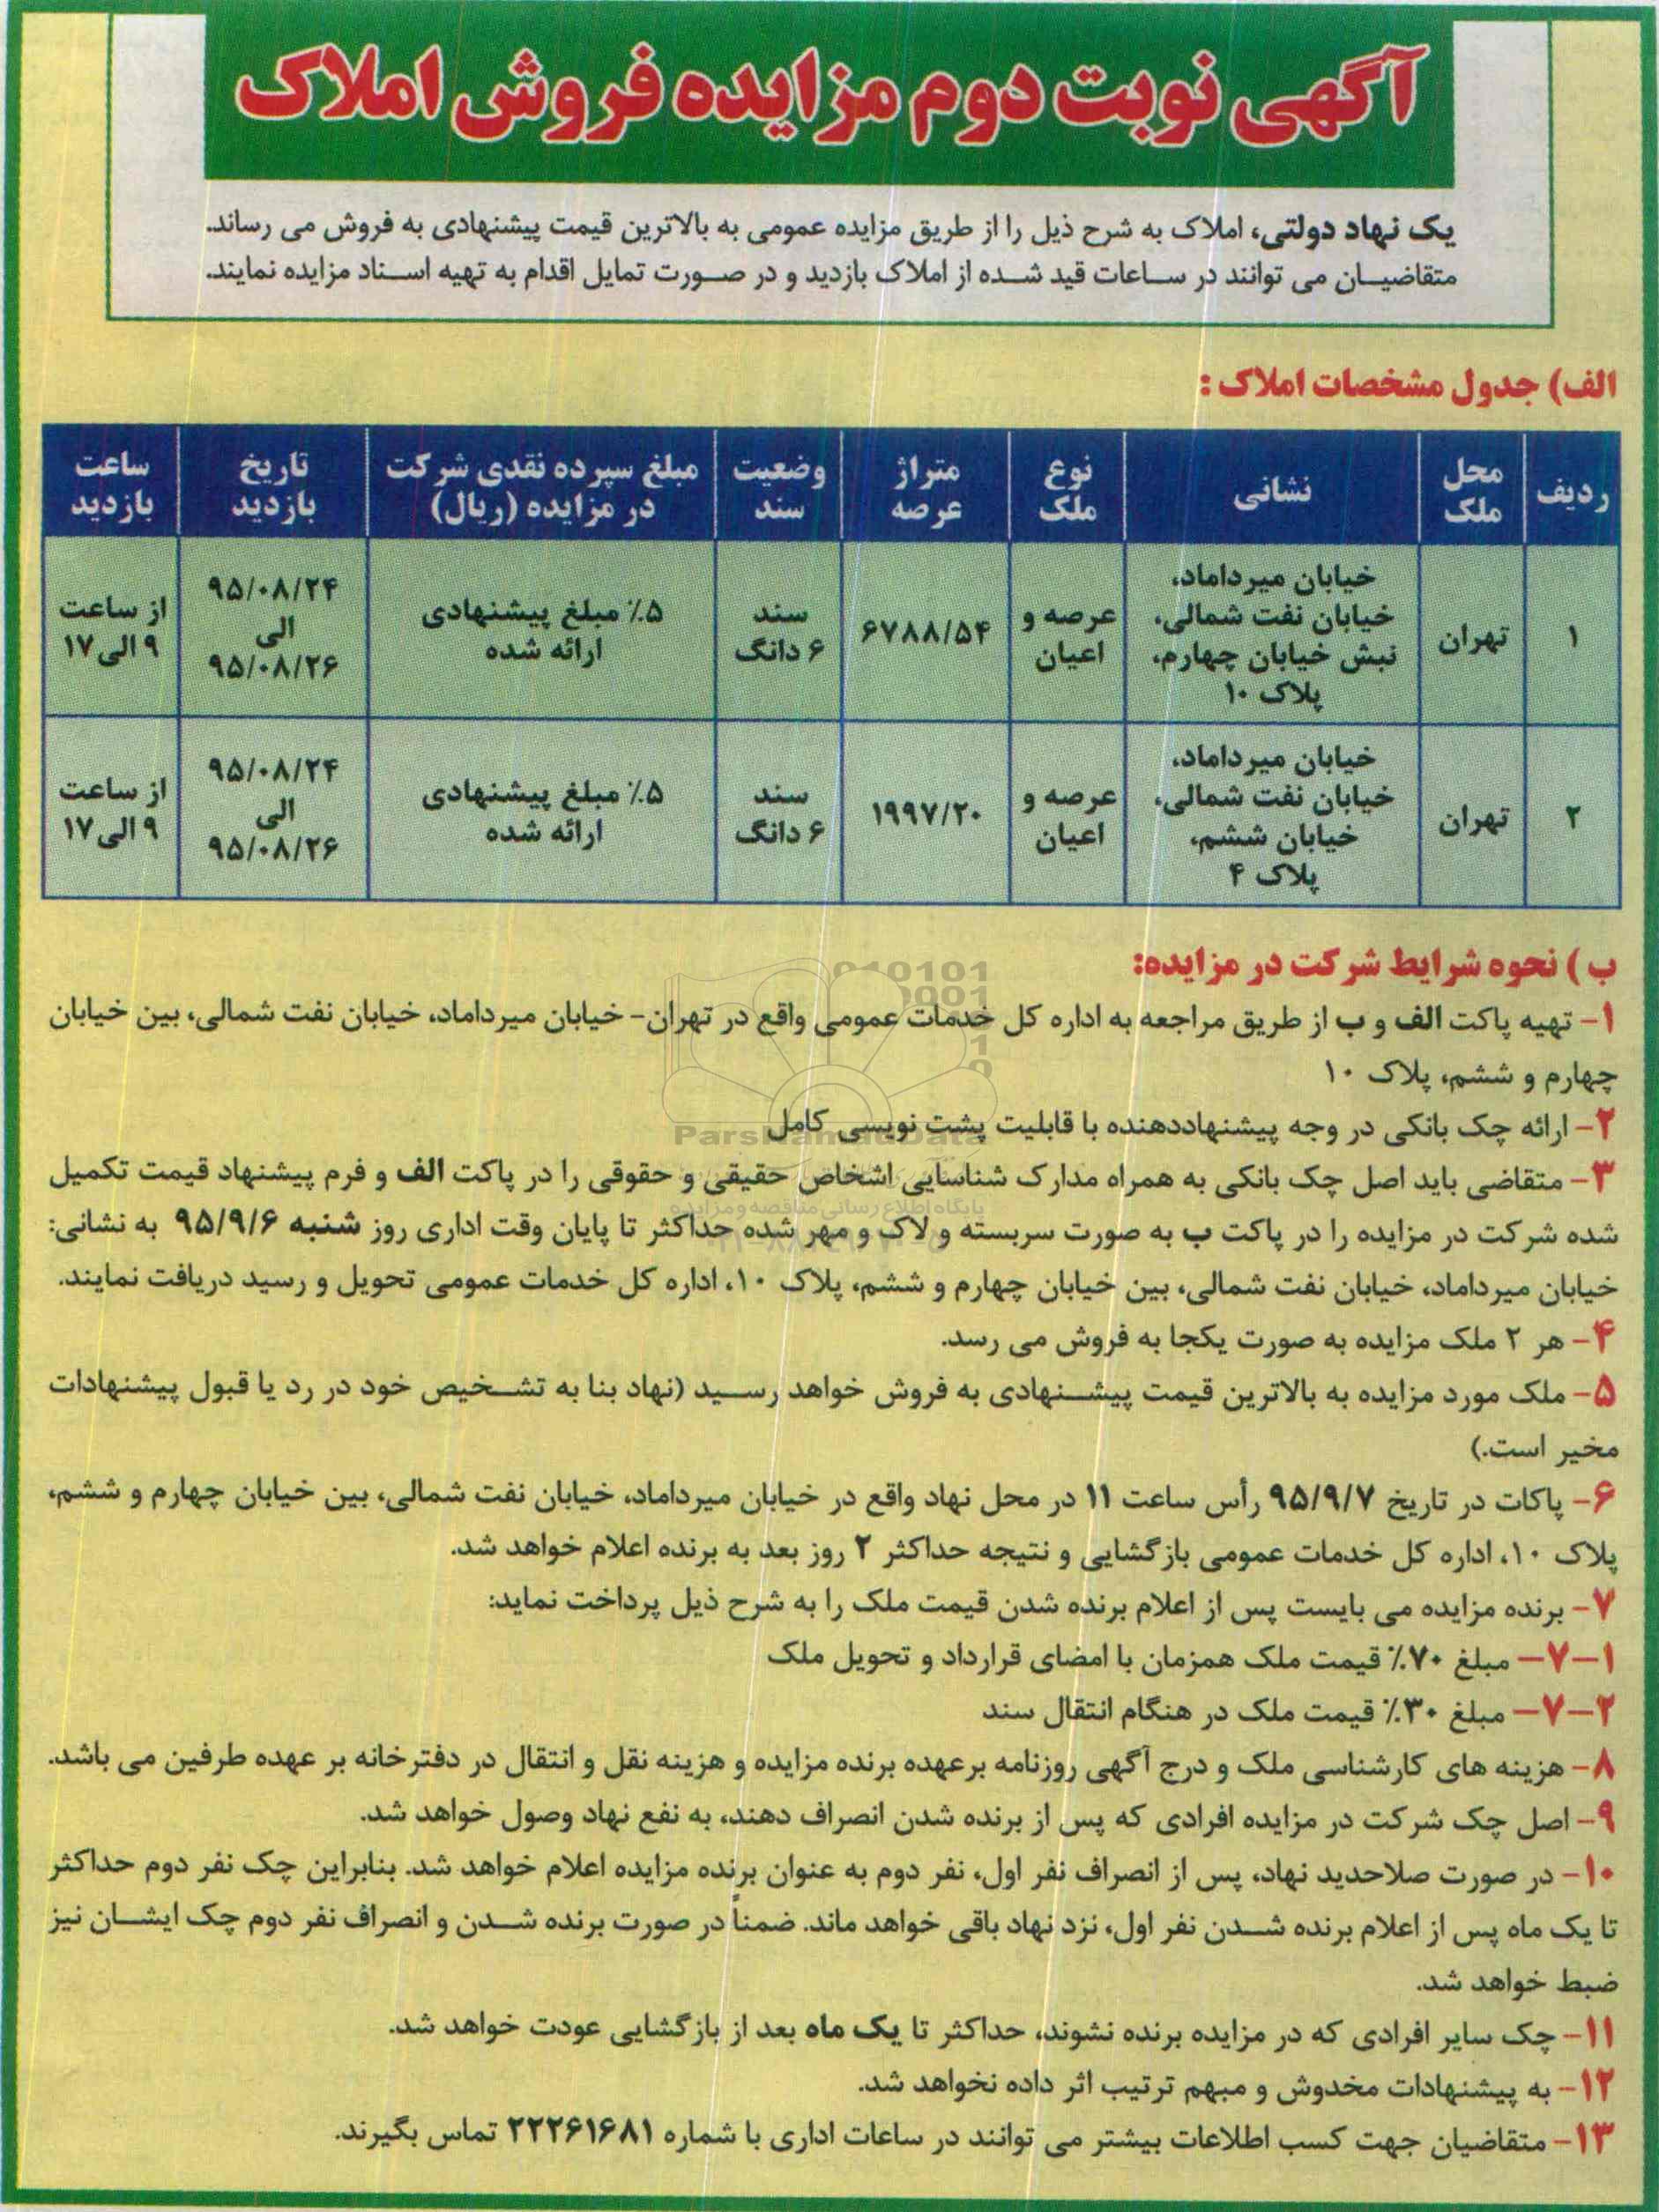 آگهی نوبت دوم مزایده فروش املاک
یک نهاد دولتی، املاک به شرح ذیل را از طریق مزایده عمومی به بالاترین قیمت پیشنهادی به فروش می رساند.
متقاضیان می توانند در ساعات قید شده از املاک بازدید و در صورت تمایل اقدام به تهیه اسناد مزایده نمایند.
الف) جدول مشخصات املاک :
ردیف | محل ملک | نشانی | نوع ملک | متراژ عرصه | وضعیت سند | مبلغ سپرده نقدی شرکت در مزایده (ریال) | تاریخ بازدید | ساعت بازدید
۱ | تهران | خیابان میرداماد، خیابان نفت شمالی، نبش خیابان چهارم، پلاک ۱۰ | عرصه و اعیان | ۶۷۸۸/۵۴ | سند ۶ دانگ | ۵٪ مبلغ پیشنهادی ارائه شده | ۹۵/۰۸/۲۴ الی ۹۵/۰۸/۲۶ | از ساعت ۹ الی ۱۷
۲ | تهران | خیابان میرداماد، خیابان نفت شمالی، خیابان ششم، پلاک ۴ | عرصه و اعیان | ۱۹۹۷/۲۰ | سند ۶ دانگ | ۵٪ مبلغ پیشنهادی ارائه شده | ۹۵/۰۸/۲۴ الی ۹۵/۰۸/۲۶ | از ساعت ۹ الی ۱۷
ب ) نحوه شرایط شرکت در مزایده:
۱- تهیه پاکت الف و ب از طریق مراجعه به اداره کل خدمات عمومی واقع در تهران- خیابان میرداماد، خیابان نفت شمالی، بین خیابان
چهارم و ششم، پلاک ۱۰
۲- ارائه چک بانکی در وجه پیشنهاددهنده با قابلیت پشت نویسی کامل
۳- متقاضی باید اصل چک بانکی به همراه مدارک شناسایی اشخاص حقیقی و حقوقی را در پاکت الف و فرم پیشنهاد قیمت تکمیل
شده شرکت در مزایده را در پاکت ب به صورت سربسته و لاک و مهر شده حداکثر تا پایان وقت اداری روز شنبه ۹۵/۹/۶ به نشانی:
خیابان میرداماد، خیابان نفت شمالی، بین خیابان چهارم و ششم، پلاک ۱۰، اداره کل خدمات عمومی تحویل و رسید دریافت نمایند.
۴- هر ۲ ملک مزایده به صورت یکجا به فروش می رسد.
۵- ملک مورد مزایده به بالاترین قیمت پیشنهادی به فروش خواهد رسید (نهاد بنا به تشخیص خود در رد یا قبول پیشنهادات
مخیر است.)
۶- پاکات در تاریخ ۹۵/۹/۷ رأس ساعت ۱۱ در محل نهاد واقع در خیابان میرداماد، خیابان نفت شمالی، بین خیابان چهارم و ششم،
پلاک ۱۰، اداره کل خدمات عمومی بازگشایی و نتیجه حداکثر ۲ روز بعد به برنده اعلام خواهد شد.
۷- برنده مزایده می بایست پس از اعلام برنده شدن قیمت ملک را به شرح ذیل پرداخت نماید:
۷-۱- مبلغ ۷۰٪ قیمت ملک همزمان با امضای قرارداد و تحویل ملک
۷-۲- مبلغ ۳۰٪ قیمت ملک در هنگام انتقال سند
۸- هزینه های کارشناسی ملک و درج آگهی روزنامه برعهده برنده مزایده و هزینه نقل و انتقال در دفترخانه بر عهده طرفین می باشد.
۹- اصل چک شرکت در مزایده افرادی که پس از برنده شدن انصراف دهند، به نفع نهاد وصول خواهد شد.
۱۰- در صورت صلاحدید نهاد، پس از انصراف نفر اول، نفر دوم به عنوان برنده مزایده اعلام خواهد شد. بنابراین چک نفر دوم حداکثر
تا یک ماه پس از اعلام برنده شدن نفر اول، نزد نهاد باقی خواهد ماند. ضمناً در صورت برنده شدن و انصراف نفر دوم چک ایشان نیز
ضبط خواهد شد.
۱۱- چک سایر افرادی که در مزایده برنده نشوند، حداکثر تا یک ماه بعد از بازگشایی عودت خواهد شد.
۱۲- به پیشنهادات مخدوش و مبهم ترتیب اثر داده نخواهد شد.
۱۳- متقاضیان جهت کسب اطلاعات بیشتر می توانند در ساعات اداری با شماره ۲۲۲۶۱۶۸۱ تماس بگیرند.
پایگاه اطلاع رسانی مناقصه و مزایده